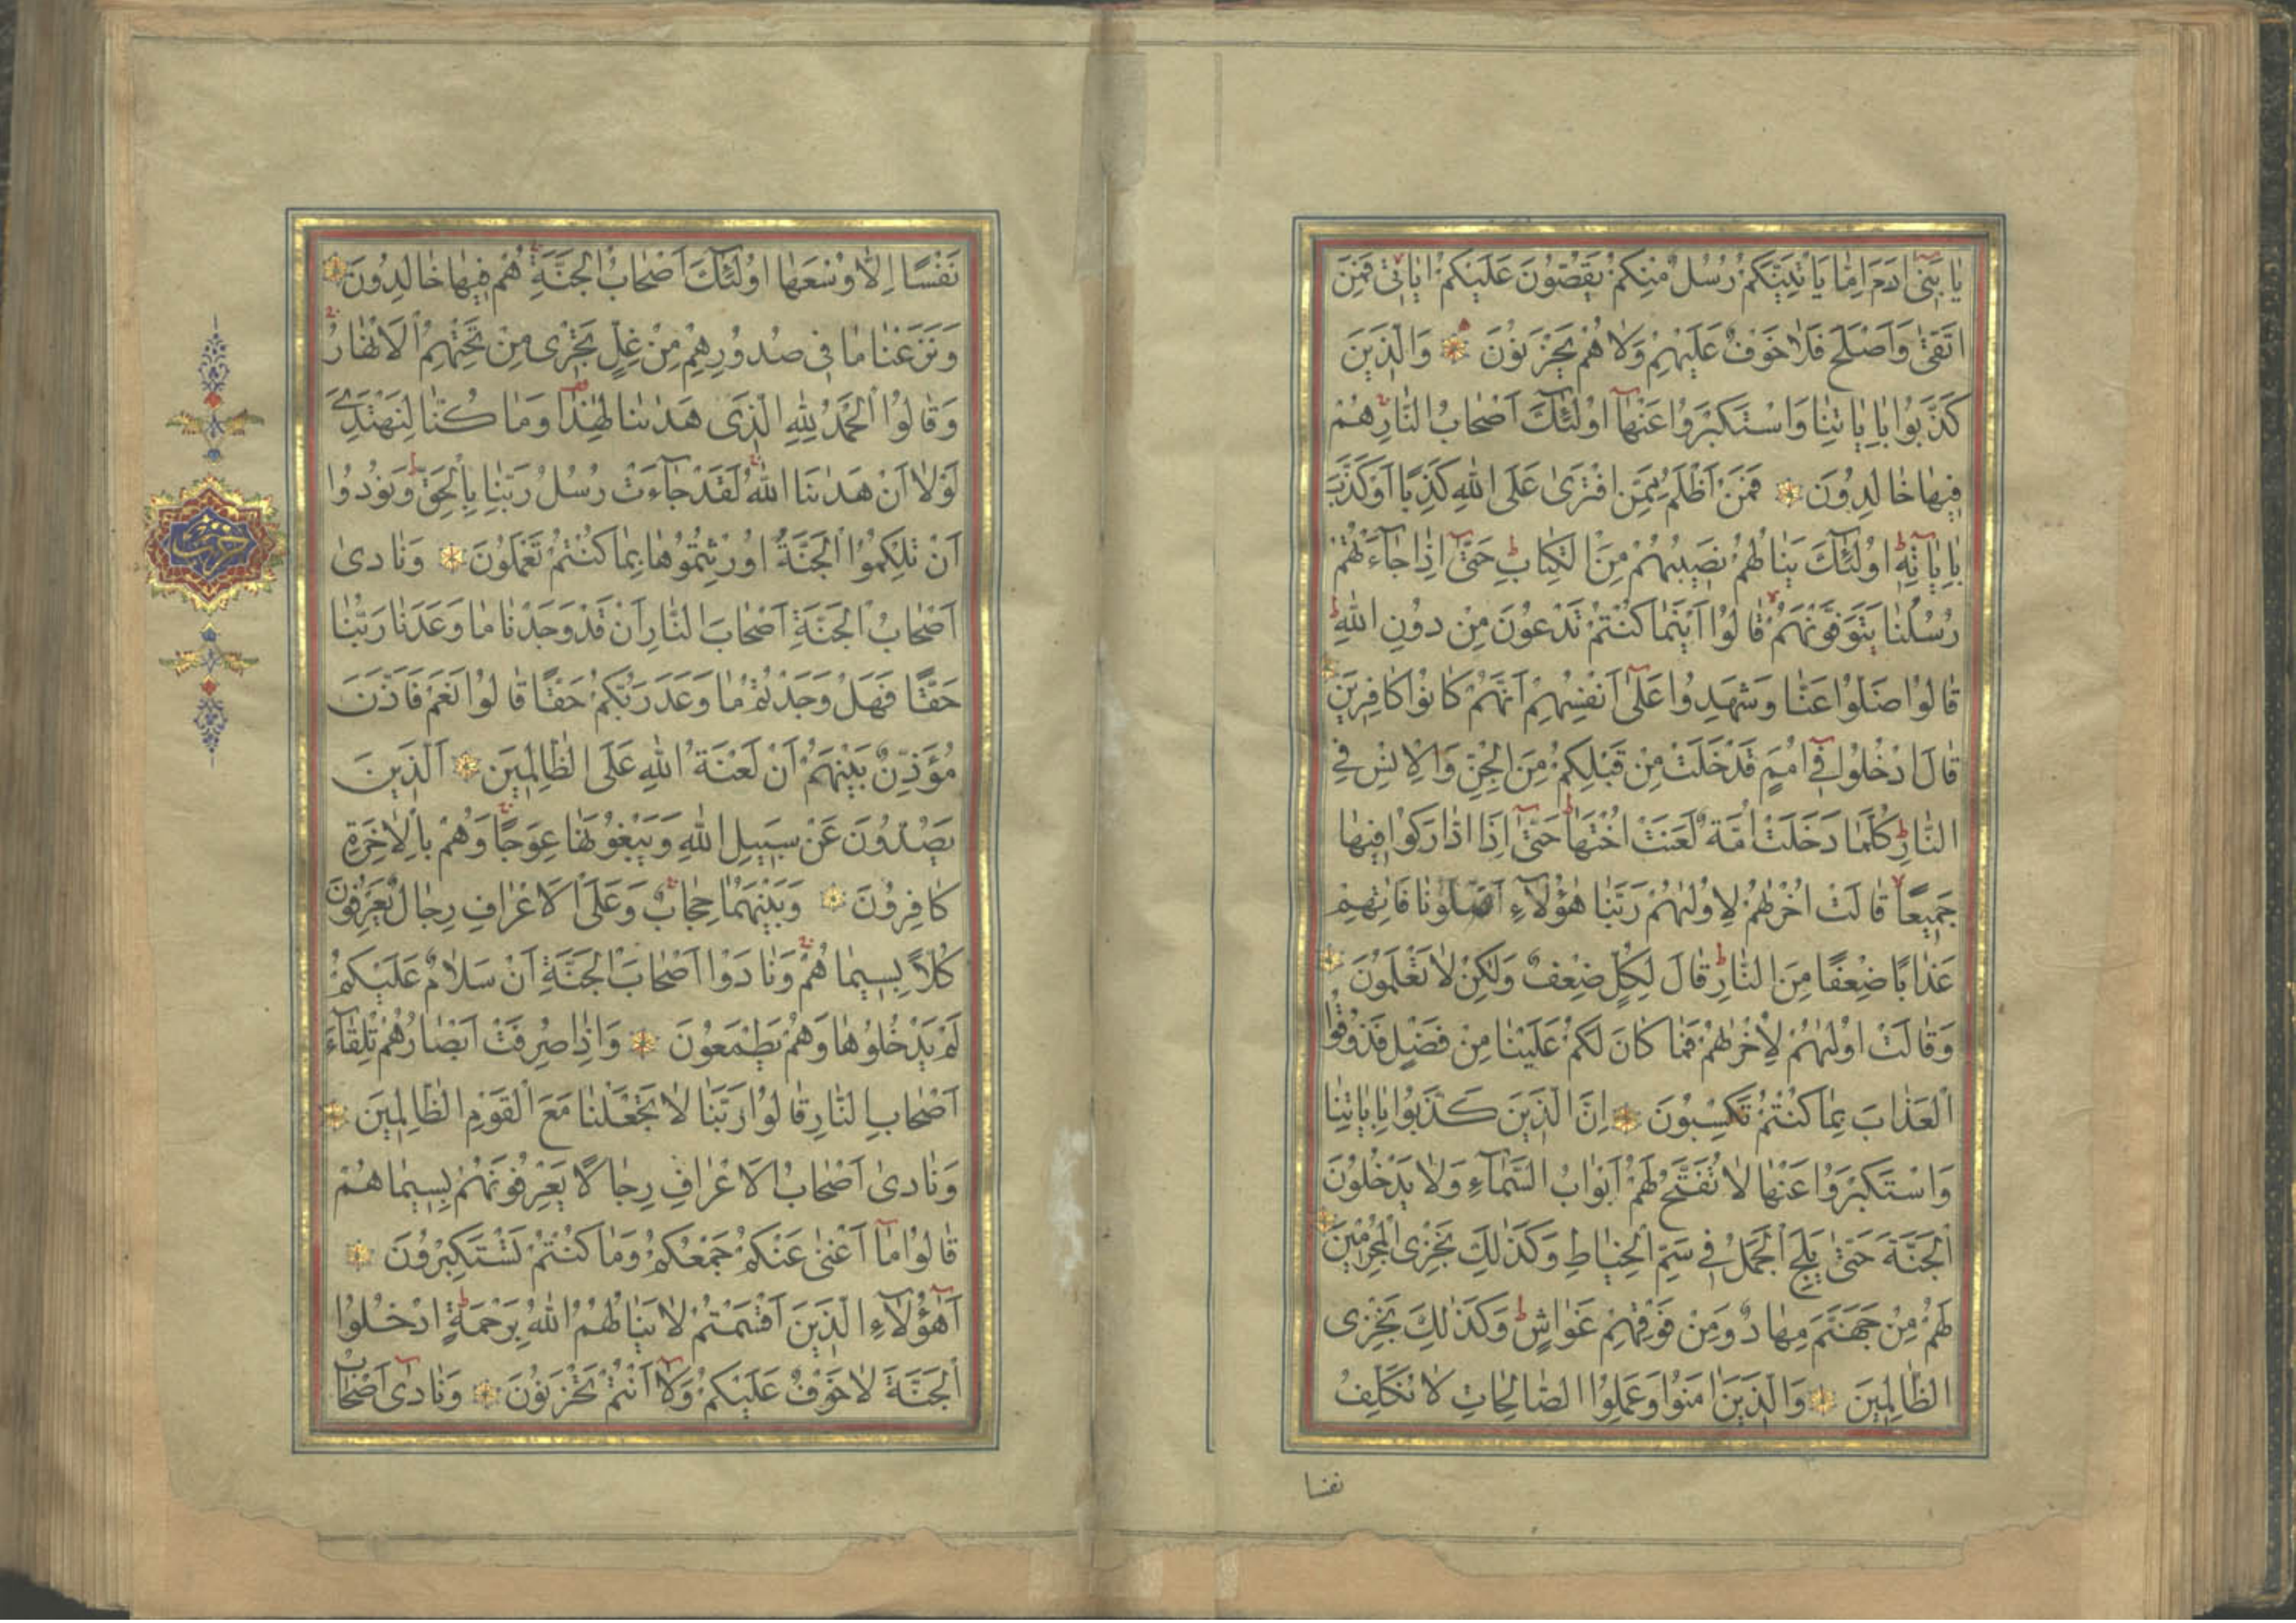 يَا بَنِي اٰدَمَ اِمَّا يَأْتِيَنَّكُمْ رُسُلٌ مِنْكُمْ يَقُصُّونَ عَلَيْكُمْ اٰيَاتِي فَمَنِ
اتَّقٰى وَاَصْلَحَ فَلَا خَوْفٌ عَلَيْهِمْ وَلَا هُمْ يَحْزَنُونَ وَالَّذِينَ
كَذَّبُوا بِاٰيَاتِنَا وَاسْتَكْبَرُوا عَنْهَا اُولٰئِكَ اَصْحَابُ النَّارِ هُمْ
فِيهَا خَالِدُونَ فَمَنْ اَظْلَمُ مِمَّنِ افْتَرٰى عَلَى اللّٰهِ كَذِبًا اَوْ كَذَّبَ
بِاٰيَاتِهِ اُولٰئِكَ يَنَالُهُمْ نَصِيبُهُمْ مِنَ الْكِتَابِ حَتّٰى اِذَا جَاءَتْهُمْ
رُسُلُنَا يَتَوَفَّوْنَهُمْ قَالُوا اَيْنَمَا كُنْتُمْ تَدْعُونَ مِنْ دُونِ اللّٰهِ
قَالُوا ضَلُّوا عَنَّا وَشَهِدُوا عَلٰى اَنْفُسِهِمْ اَنَّهُمْ كَانُوا كَافِرِينَ
قَالَ ادْخُلُوا فِي اُمَمٍ قَدْ خَلَتْ مِنْ قَبْلِكُمْ مِنَ الْجِنِّ وَالْاِنْسِ فِي
النَّارِ كُلَّمَا دَخَلَتْ اُمَّةٌ لَعَنَتْ اُخْتَهَا حَتّٰى اِذَا ادَّارَكُوا فِيهَا
جَمِيعًا قَالَتْ اُخْرٰيهُمْ لِاُولٰيهُمْ رَبَّنَا هٰؤُلَاءِ اَضَلُّونَا فَاٰتِهِمْ
عَذَابًا ضِعْفًا مِنَ النَّارِ قَالَ لِكُلٍّ ضِعْفٌ وَلٰكِنْ لَا تَعْلَمُونَ
وَقَالَتْ اُولٰيهُمْ لِاُخْرٰيهُمْ فَمَا كَانَ لَكُمْ عَلَيْنَا مِنْ فَضْلٍ فَذُوقُوا
الْعَذَابَ بِمَا كُنْتُمْ تَكْسِبُونَ اِنَّ الَّذِينَ كَذَّبُوا بِاٰيَاتِنَا
وَاسْتَكْبَرُوا عَنْهَا لَا تُفَتَّحُ لَهُمْ اَبْوَابُ السَّمَاءِ وَلَا يَدْخُلُونَ
الْجَنَّةَ حَتّٰى يَلِجَ الْجَمَلُ فِي سَمِّ الْخِيَاطِ وَكَذٰلِكَ نَجْزِي الْمُجْرِمِينَ
لَهُمْ مِنْ جَهَنَّمَ مِهَادٌ وَمِنْ فَوْقِهِمْ غَوَاشٍ وَكَذٰلِكَ نَجْزِي
الظَّالِمِينَ وَالَّذِينَ اٰمَنُوا وَعَمِلُوا الصَّالِحَاتِ لَا نُكَلِّفُ
نفسا
نَفْسًا اِلَّا وُسْعَهَا اُولٰئِكَ اَصْحَابُ الْجَنَّةِ هُمْ فِيهَا خَالِدُونَ
وَنَزَعْنَا مَا فِي صُدُورِهِمْ مِنْ غِلٍّ تَجْرِي مِنْ تَحْتِهِمُ الْاَنْهَارُ
وَقَالُوا الْحَمْدُ لِلّٰهِ الَّذِي هَدٰينَا لِهٰذَا وَمَا كُنَّا لِنَهْتَدِيَ
لَوْلَا اَنْ هَدٰينَا اللّٰهُ لَقَدْ جَاءَتْ رُسُلُ رَبِّنَا بِالْحَقِّ وَنُودُوا
اَنْ تِلْكُمُ الْجَنَّةُ اُورِثْتُمُوهَا بِمَا كُنْتُمْ تَعْمَلُونَ وَنَادٰى
اَصْحَابُ الْجَنَّةِ اَصْحَابَ النَّارِ اَنْ قَدْ وَجَدْنَا مَا وَعَدَنَا رَبُّنَا
حَقًّا فَهَلْ وَجَدْتُمْ مَا وَعَدَ رَبُّكُمْ حَقًّا قَالُوا نَعَمْ فَاَذَّنَ
مُؤَذِّنٌ بَيْنَهُمْ اَنْ لَعْنَةُ اللّٰهِ عَلَى الظَّالِمِينَ اَلَّذِينَ
يَصُدُّونَ عَنْ سَبِيلِ اللّٰهِ وَيَبْغُونَهَا عِوَجًا وَهُمْ بِالْاٰخِرَةِ
كَافِرُونَ وَبَيْنَهُمَا حِجَابٌ وَعَلَى الْاَعْرَافِ رِجَالٌ يَعْرِفُونَ
كُلًّا بِسِيمَاهُمْ وَنَادَوْا اَصْحَابَ الْجَنَّةِ اَنْ سَلَامٌ عَلَيْكُمْ
لَمْ يَدْخُلُوهَا وَهُمْ يَطْمَعُونَ وَاِذَا صُرِفَتْ اَبْصَارُهُمْ تِلْقَاءَ
اَصْحَابِ النَّارِ قَالُوا رَبَّنَا لَا تَجْعَلْنَا مَعَ الْقَوْمِ الظَّالِمِينَ
وَنَادٰى اَصْحَابُ الْاَعْرَافِ رِجَالًا يَعْرِفُونَهُمْ بِسِيمَاهُمْ
قَالُوا مَا اَغْنٰى عَنْكُمْ جَمْعُكُمْ وَمَا كُنْتُمْ تَسْتَكْبِرُونَ
اَهٰؤُلَاءِ الَّذِينَ اَقْسَمْتُمْ لَا يَنَالُهُمُ اللّٰهُ بِرَحْمَةٍ ادْخُلُوا
الْجَنَّةَ لَا خَوْفٌ عَلَيْكُمْ وَلَا اَنْتُمْ تَحْزَنُونَ وَنَادٰى اَصْحَابُ
حزب